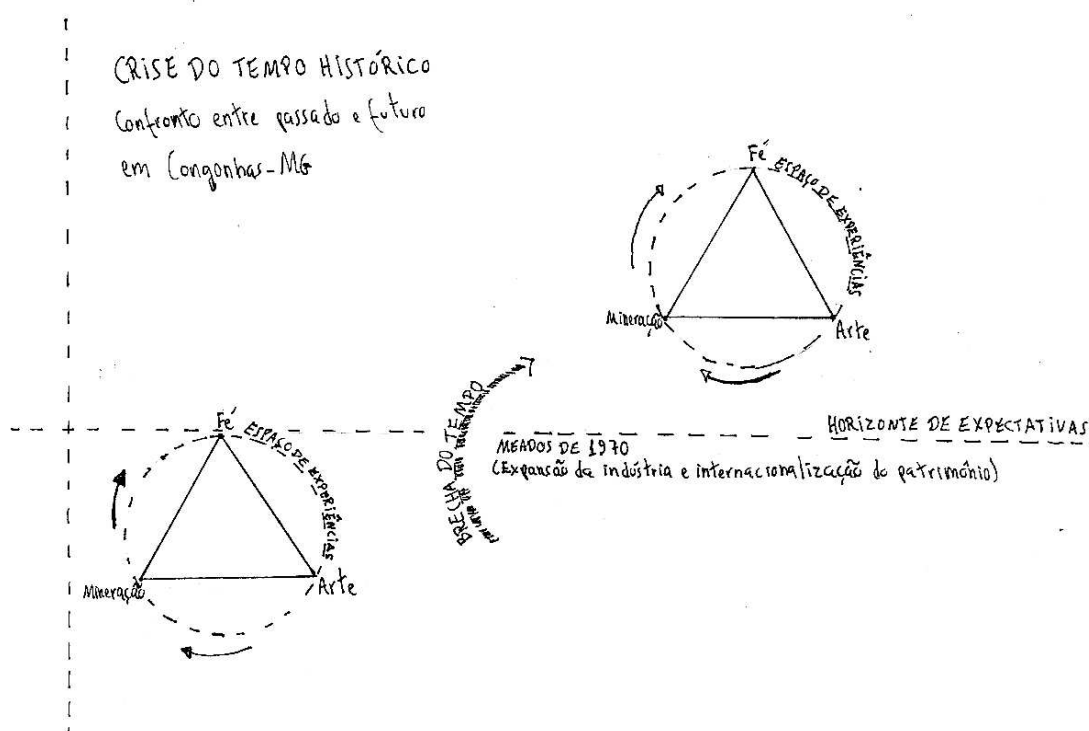 CRISE DO TEMPO HISTÓRICO
Confronto entre passado e futuro
em Congonhas-MG
Fé
ESPAÇO DE EXPERIÊNCIAS
Mineração
Arte
BRECHA DO TEMPO
HORIZONTE DE EXPECTATIVAS
MEADOS DE 1970
(Expansão da indústria e internacionalização do patrimônio)
Fé
ESPAÇO DE EXPERIÊNCIAS
Mineração
Arte